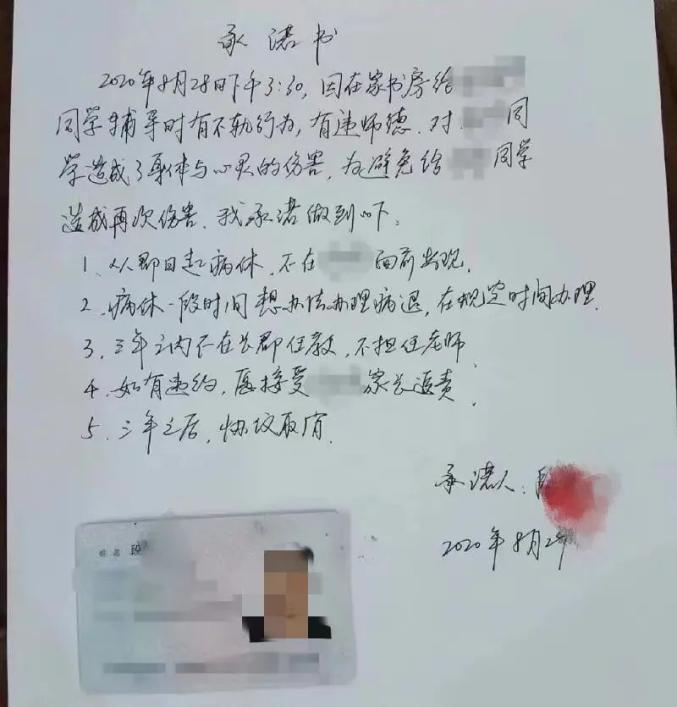 承诺书
2020年8月28日下午3:30，因在家书房给
同学辅导时有不轨行为，有违师德．对 同
学造成了身体与心灵的伤害．为避免给 同学
造成再次伤害．我承诺做到以下：
1、从即日起病休，不在 面前出现．
2、病休一段时间想办法办理病退，在规定时间办理．
3、三年之内不在长郡任教，不担任老师．
4、如有违约，愿接受 家长追责．
5、三年之后，协议取消．
承诺人：段
2020年8月2
姓名 段